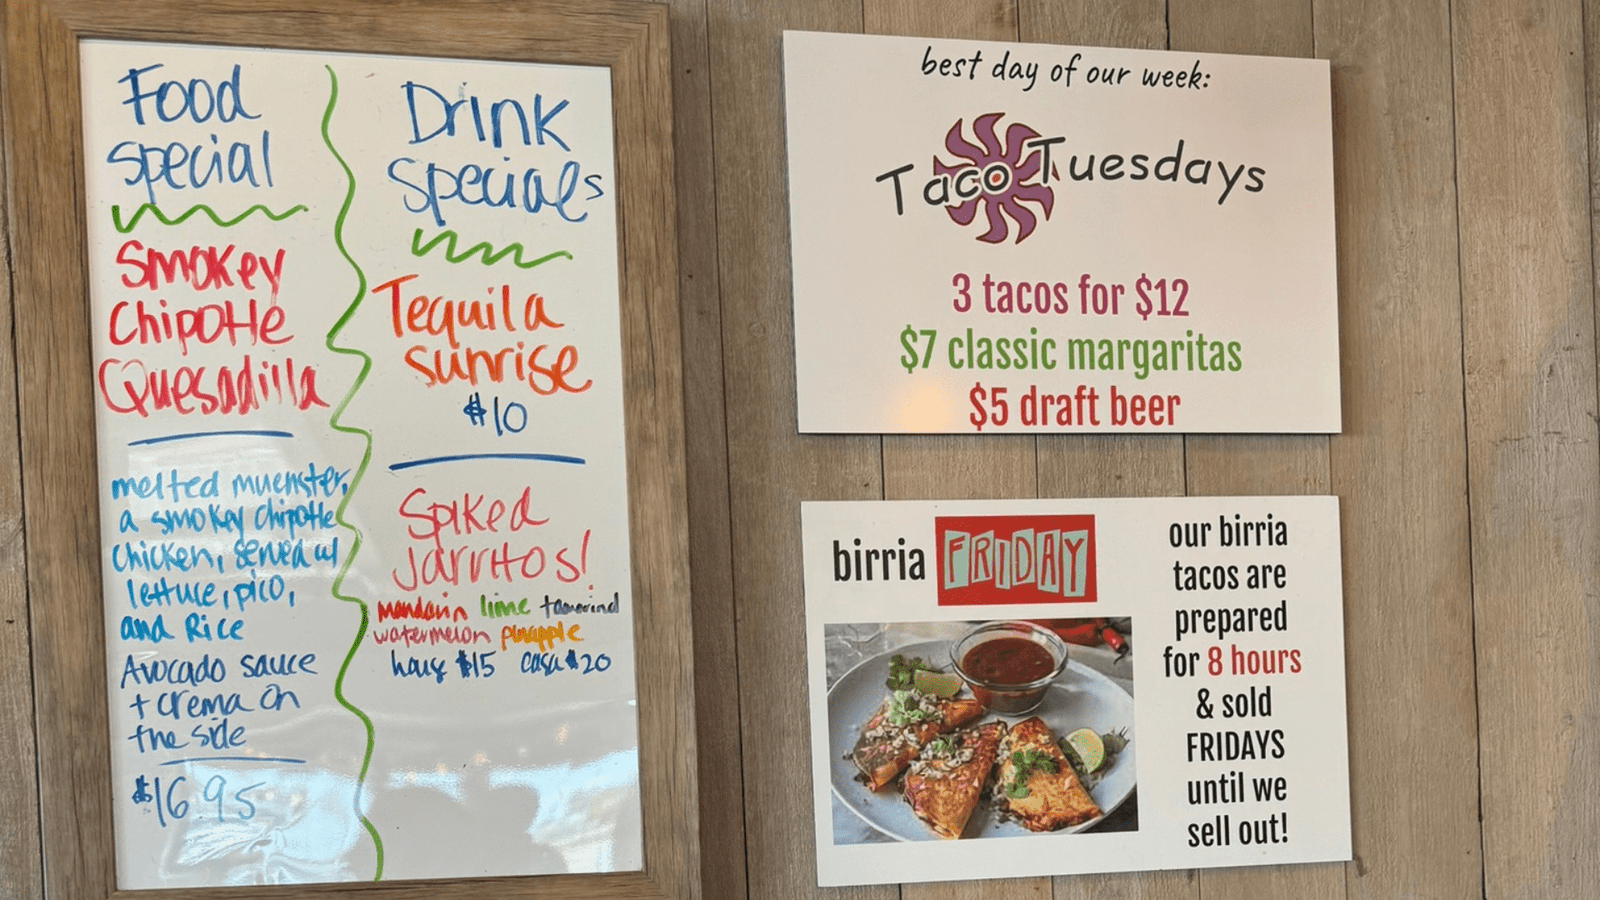 Food
special
Smokey
Chipotle
Quesadilla
melted muenster,
a smokey chipotle
chicken, served w/
lettuce, pico,
and Rice
Avocado sauce
+ crema on
the side
$16.95
Drink
specials
Tequila
sunrise
$10
Spiked
Jarritos!
mandarin lime tamarind
watermelon pineapple
house $15 casa $20
best day of our week:
Taco Tuesdays
3 tacos for $12
$7 classic margaritas
$5 draft beer
birria FRIDAY
our birria
tacos are
prepared
for 8 hours
& sold
FRIDAYS
until we
sell out!